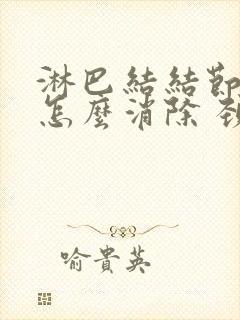 淋巴結結節
怎麼消除
喻貴英